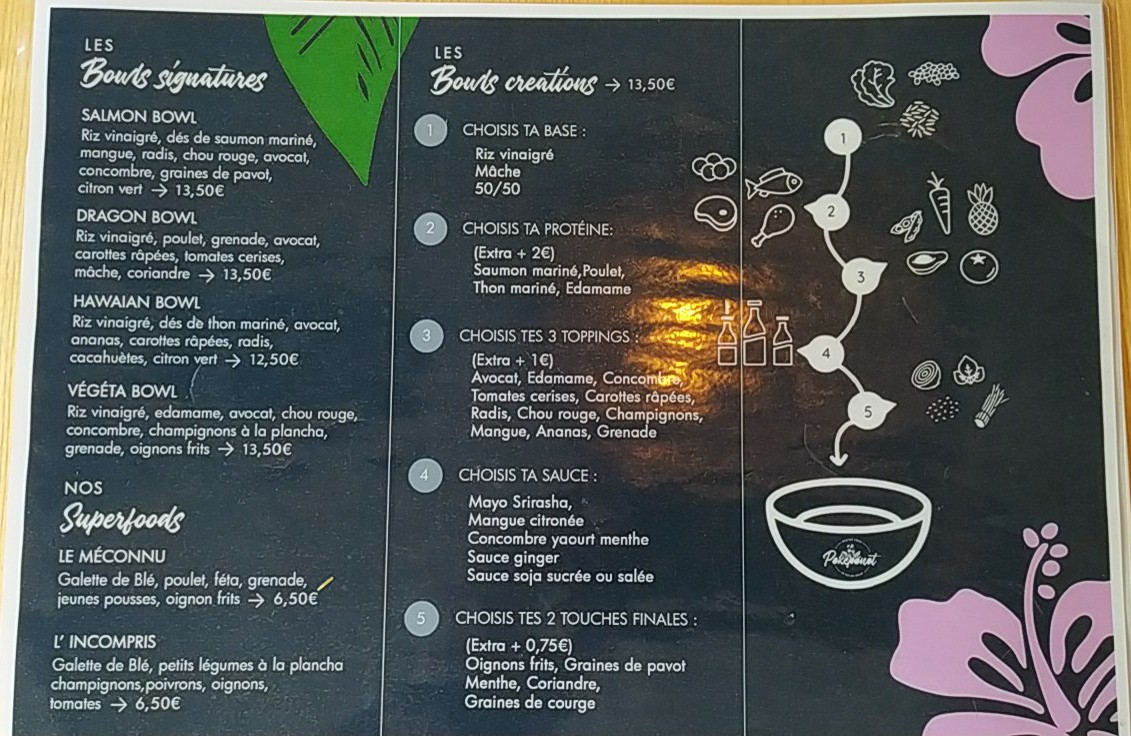 LES
Bowls signatures
SALMON BOWL
Riz vinaigré, dés de saumon mariné,
mangue, radis, chou rouge, avocat,
concombre, graines de pavot,
citron vert → 13,50€
DRAGON BOWL
Riz vinaigré, poulet, grenade, avocat,
carottes râpées, tomates cerises,
mâche, coriandre → 13,50€
HAWAIAN BOWL
Riz vinaigré, dés de thon mariné, avocat,
ananas, carottes râpées, radis,
cacahuètes, citron vert → 12,50€
VÉGÉTA BOWL
Riz vinaigré, edamame, avocat, chou rouge,
concombre, champignons à la plancha,
grenade, oignons frits → 13,50€
NOS
Superfoods
LE MÉCONNU
Galette de Blé, poulet, féta, grenade,
jeunes pousses, oignon frits → 6,50€
L' INCOMPRIS
Galette de Blé, petits légumes à la plancha
champignons,poivrons, oignons,
tomates → 6,50€
LES
Bowls creations → 13,50€
1 CHOISIS TA BASE :
Riz vinaigré
Mâche
50/50
2 CHOISIS TA PROTÉINE:
(Extra + 2€)
Saumon mariné,Poulet,
Thon mariné, Edamame
3 CHOISIS TES 3 TOPPINGS :
(Extra + 1€)
Avocat, Edamame, Concombre,
Tomates cerises, Carottes râpées,
Radis, Chou rouge, Champignons,
Mangue, Ananas, Grenade
4 CHOISIS TA SAUCE :
Mayo Srirasha,
Mangue citronée
Concombre yaourt menthe
Sauce ginger
Sauce soja sucrée ou salée
5 CHOISIS TES 2 TOUCHES FINALES :
(Extra + 0,75€)
Oignons frits, Graines de pavot
Menthe, Coriandre,
Graines de courge
1
2
3
4
5